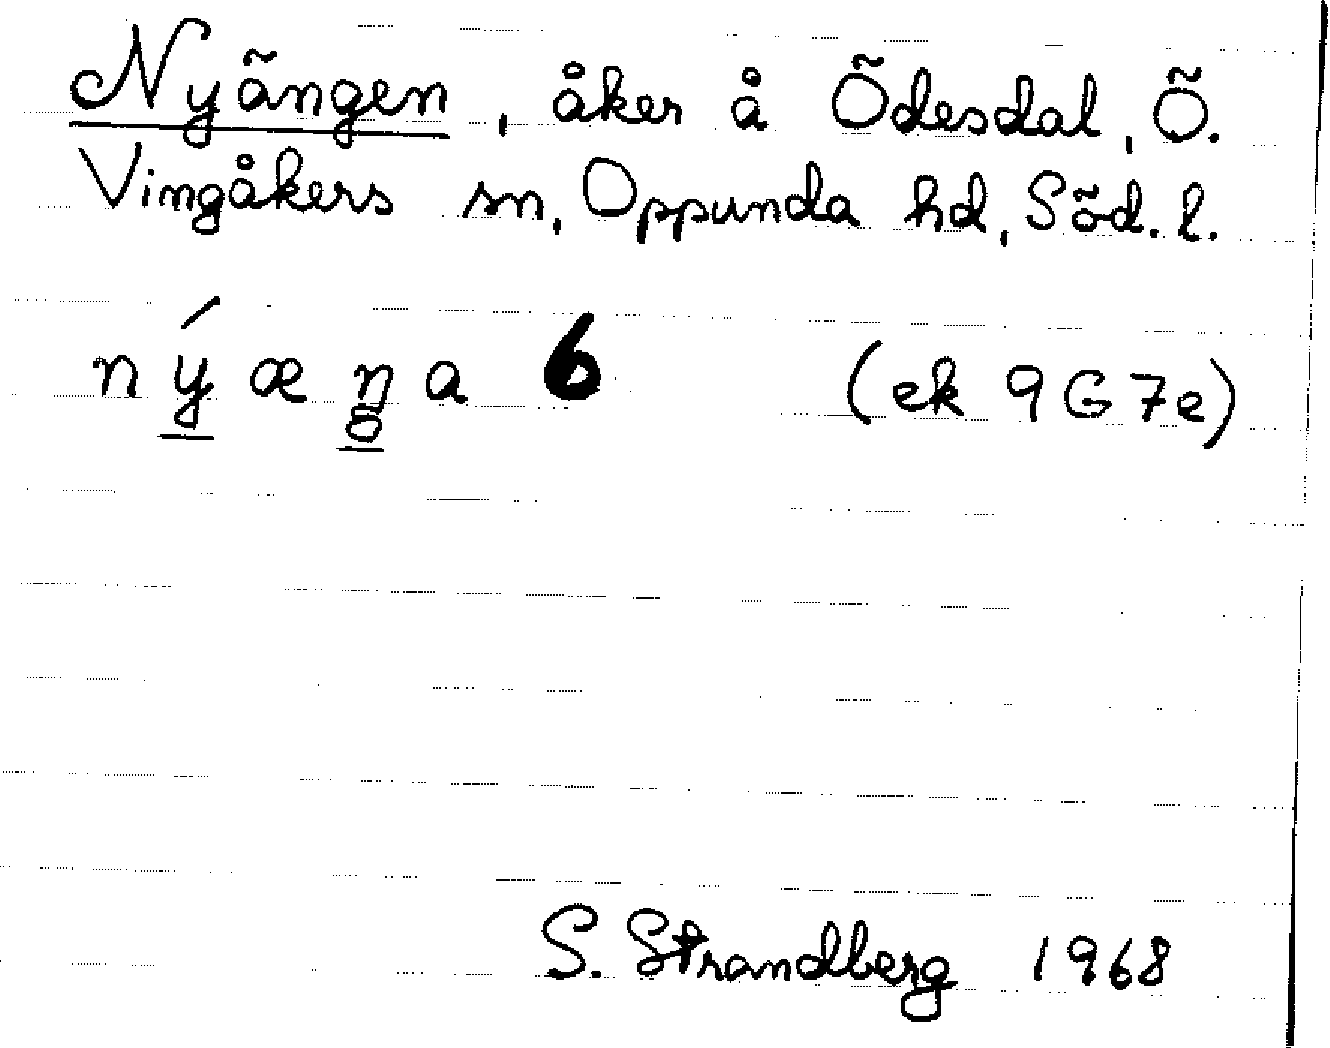 Nyängen, åker å Ödesdal, Ö.
Vingåkers sn, Oppunda hd, Söd. l.
nýæŋa 6 (ek 9G7e)
S. Strandberg 1968